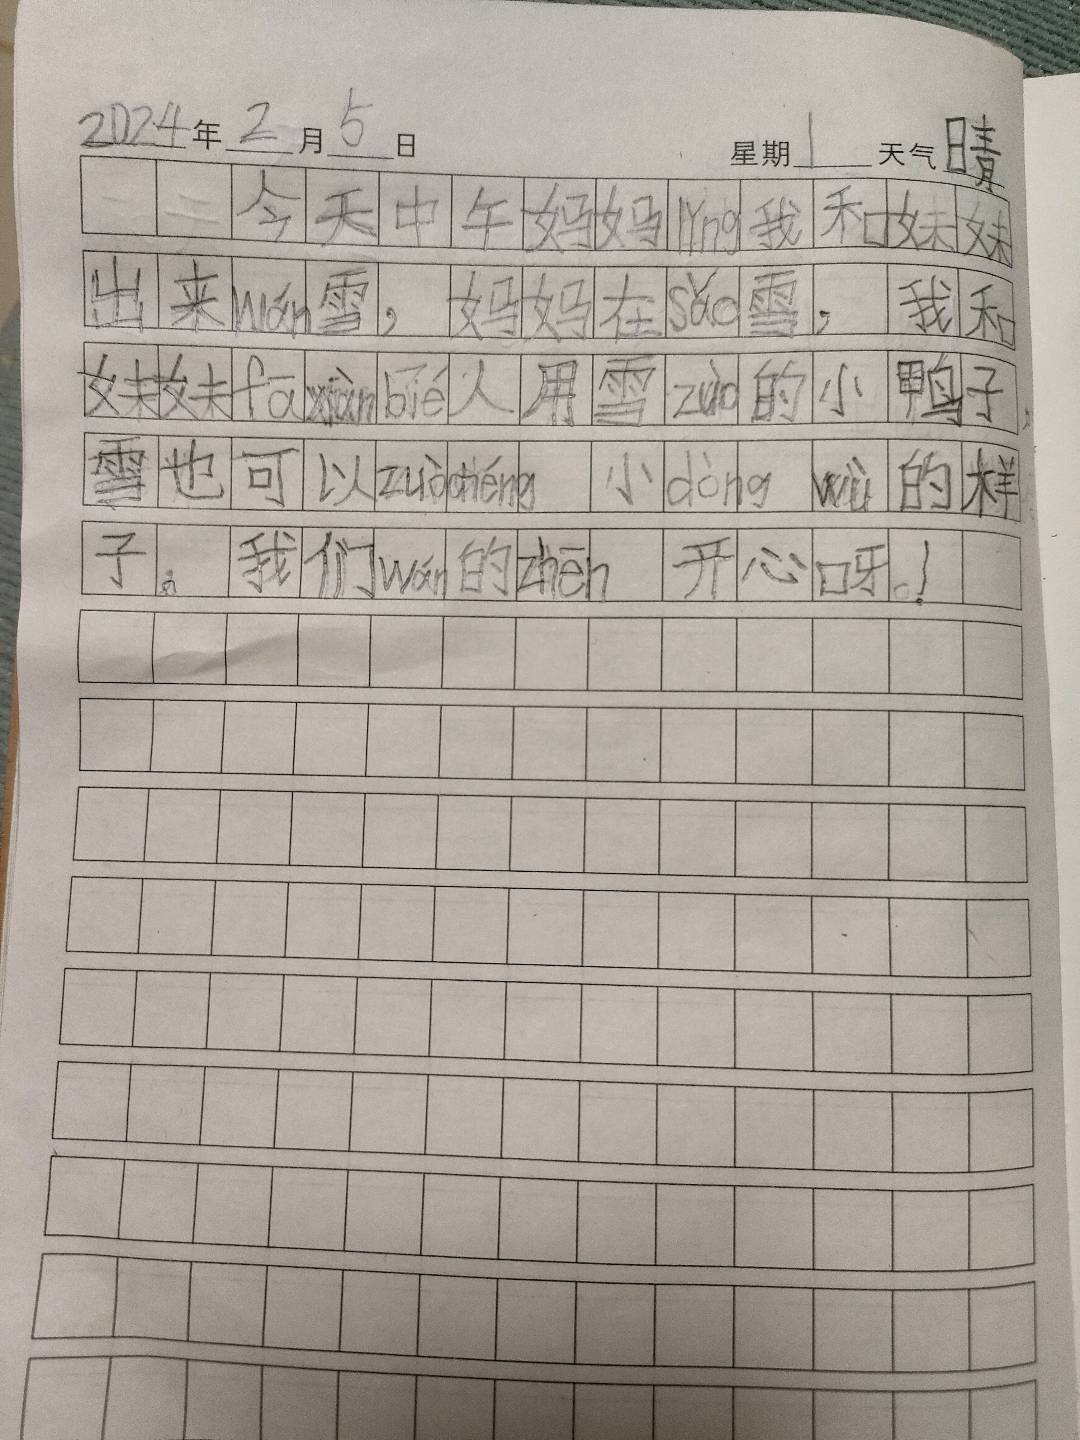 2024年2月5日 星期1天气晴
今天中午妈妈lǐng我和妹妹
出来wán雪，妈妈在sǎo雪，我和
妹妹fāxiànbié人用雪zuò的小鸭子，
雪也可以zuòchéng小dòngwù的样
子。我们wán的zhēn开心呀！